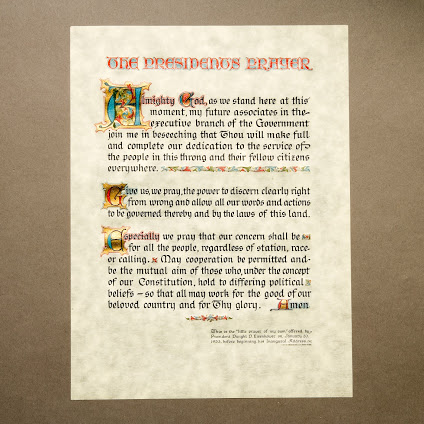 THE PRESIDENTS PRAYER
Almighty God, as we stand here at this
moment, my future associates in the
executive branch of the Government
join me in beseeching that Thou will make full
and complete our dedication to the service of
the people in this throng and their fellow citizens
everywhere.
Give us, we pray, the power to discern clearly right
from wrong and allow all our words and actions
to be governed thereby and by the laws of this land.
Especially we pray that our concern shall be
for all the people, regardless of station, race
or calling. May cooperation be permitted and
be the mutual aim of those who, under the concept
of our Constitution, hold to differing political
beliefs – so that all may work for the good of our
beloved country and for Thy glory. Amen
This is the "little prayer of my own" offered by
President Dwight D. Eisenhower on January 20,
1953, before beginning his Inaugural Address